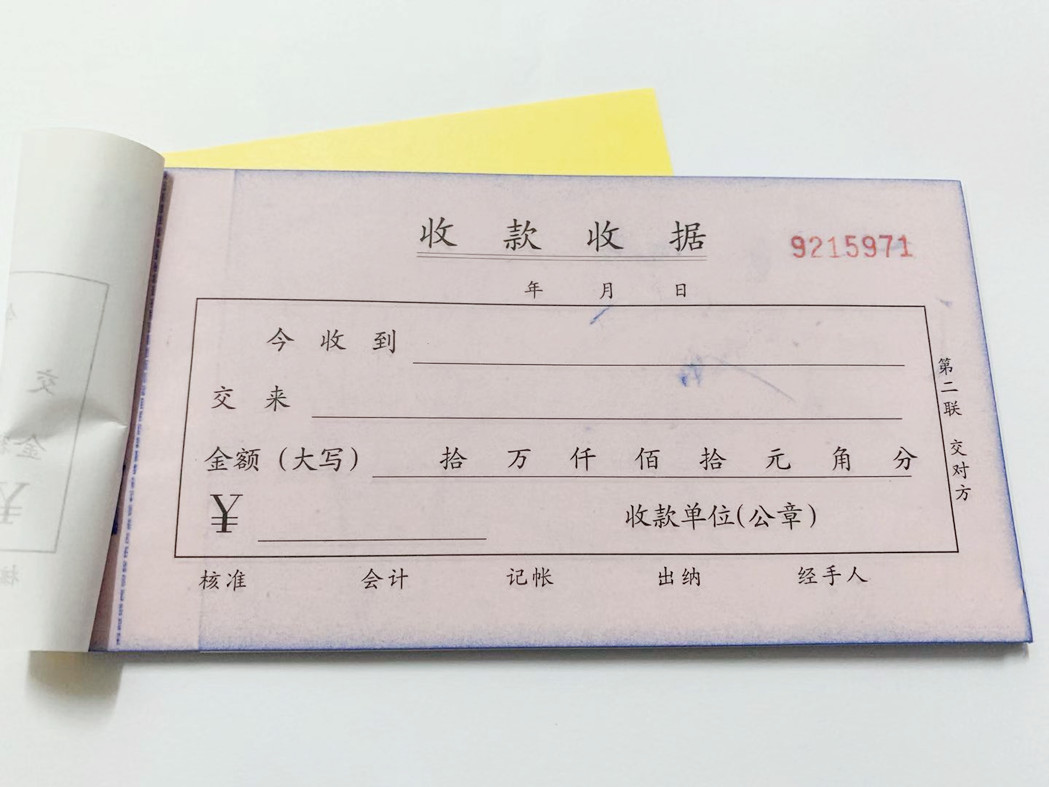 收款收据
9215971
年 月 日
今收到
交来
金额（大写） 拾 万 仟 佰 拾 元 角 分
¥ 收款单位(公章)
核准 会计 记帐 出纳 经手人
第二联 交对方
交
金
¥